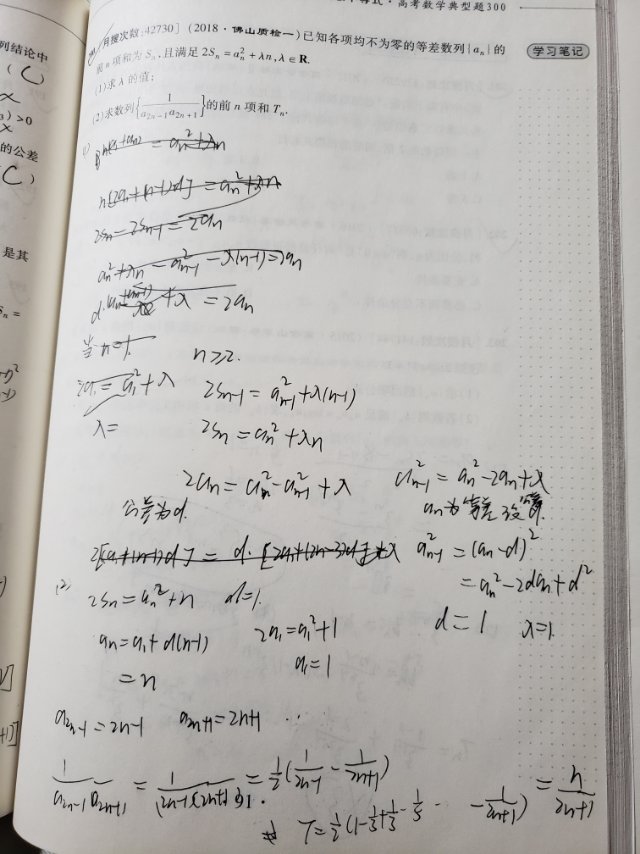 高考数学典型题300
列结论中
(C)
月搜次数:42730] (2018·佛山质检一)已知各项均不为零的等差数列{aₙ}的
学习笔记
前 n 项和为 Sₙ,且满足 2Sₙ=aₙ²+λn,λ∈R.
(1)求 λ 的值;
)>0
(2)求数列{1/(a₂ₙ₋₁a₂ₙ₊₁)}的前 n 项和 Tₙ.
的公差
C)
n[2a₁+(n-1)d]=aₙ²+λn
2Sₙ-2Sₙ₋₁=2aₙ
是其
aₙ²+λn-aₙ₋₁²-λ(n-1)=2aₙ
+λ=2aₙ
Sₙ=
当n=1.
n≥2.
2a₁=a₁²+λ
2Sₙ₋₁=aₙ₋₁²+λ(n-1)
λ=
2Sₙ=aₙ²+λn
2aₙ=aₙ²-aₙ₋₁²+λ
aₙ₋₁²=aₙ²-2aₙ+λ
公差为d.
aₙ为等差数列
aₙ₋₁²=(aₙ-d)²
=aₙ²-2daₙ+d²
(2)
2Sₙ=aₙ²+n d=1.
d=1 λ=1.
aₙ=a₁+d(n-1)
2a₁=a₁²+1
=n
a₁=1
a₂ₙ₋₁=2n-1 a₂ₙ₊₁=2n+1
1/(a₂ₙ₋₁a₂ₙ₊₁)=1/((2n-1)(2n+1))=1/2(1/(2n-1)-1/(2n+1))
T=1/2(1-1/3+1/3-1/5 ··· -1/(2n+1))=n/(2n+1)